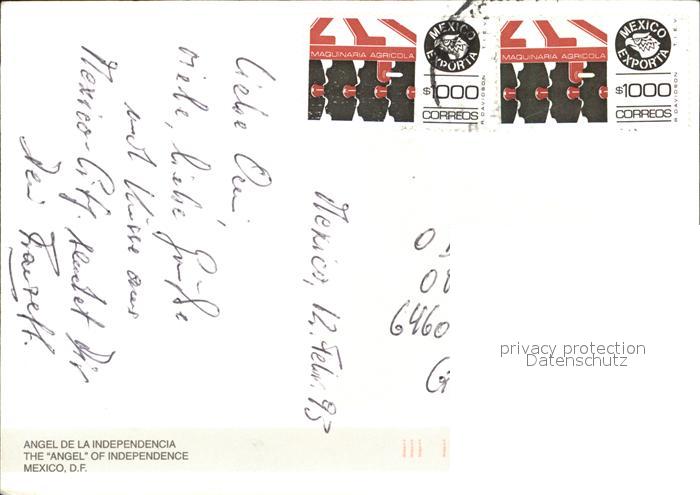 MAQUINARIA AGRICOLA
MEXICO
EXPORTA
T.I.E.V.
$1000
R. DAVIDSON
CORREOS
MAQUINARIA AGRICOLA
MEXICO
EXPORTA
T.I.E.V.
$1000
R. DAVIDSON
CORREOS
Mexico, 12. Febr. 95
Liebe
viele, liebe Grüße
und Küsse aus
Mexico-City sendet Dir
Dein
6460
G
privacy protection
Datenschutz
ANGEL DE LA INDEPENDENCIA
THE "ANGEL" OF INDEPENDENCE
MEXICO, D.F.